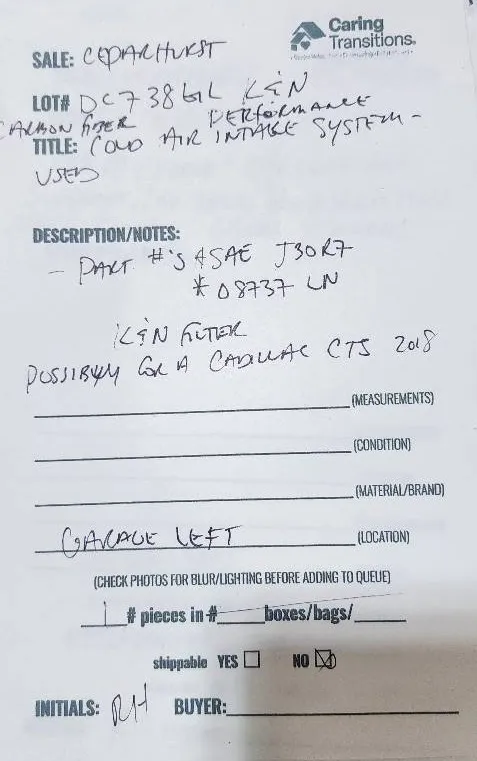 Caring
Transitions.
SALE: CEDARHURST
LOT# DC738GL K&N
CARBON FIBER PERFORMANCE
TITLE: COLD AIR INTAKE SYSTEM -
USED
DESCRIPTION/NOTES:
- PART #'S * SAE J30R7
* 08737 LN
K&N FILTER
POSSIBLY FOR A CADILLAC CTS 2018
(MEASUREMENTS)
(CONDITION)
(MATERIAL/BRAND)
GARAGE LEFT (LOCATION)
(CHECK PHOTOS FOR BLUR/LIGHTING BEFORE ADDING TO QUEUE)
1 # pieces in # boxes/bags/
shippable YES ☐ NO ☒
INITIALS: RH BUYER: